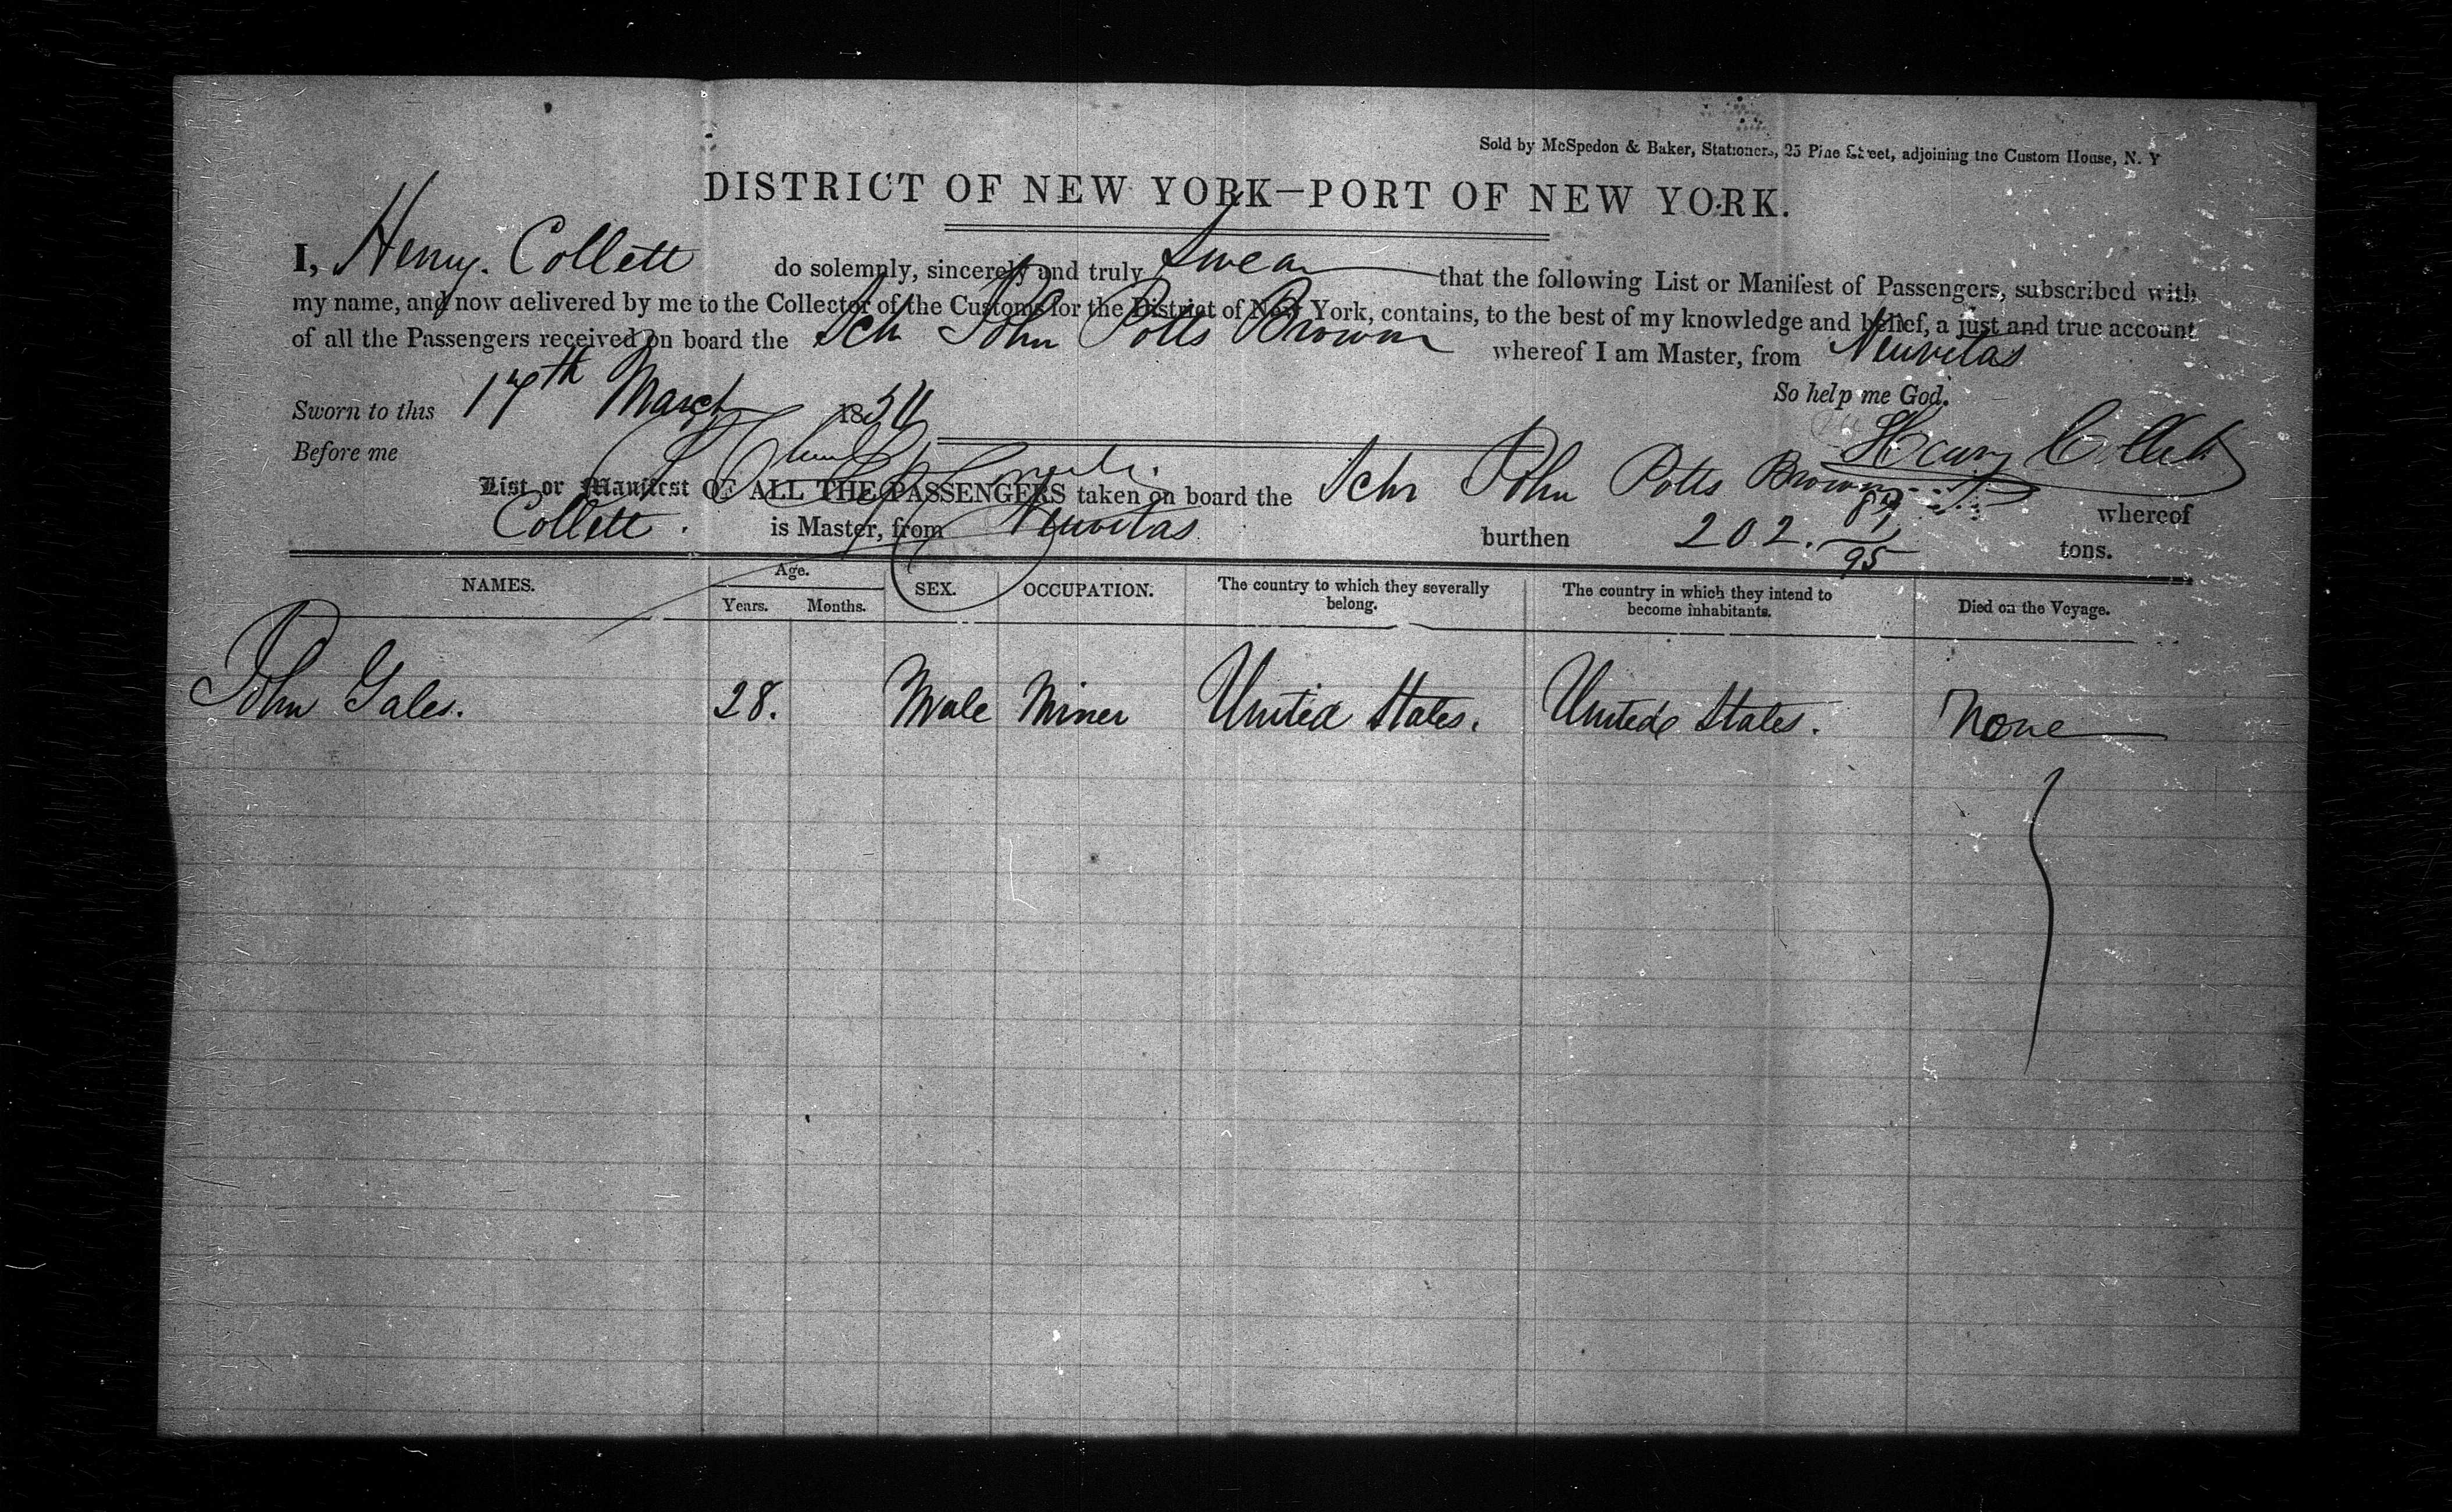 Sold by McSpedon & Baker, Stationers, 25 Pine Street, adjoining the Custom House, N. Y
DISTRICT OF NEW YORK—PORT OF NEW YORK.
I, Henry. Collett do solemnly, sincerely and truly swear that the following List or Manifest of Passengers, subscribed with
my name, and now delivered by me to the Collector of the Customs for the District of New York, contains, to the best of my knowledge and belief, a just and true account
of all the Passengers received on board the Sch John Potts Brown whereof I am Master, from Neuvitas
So help me God.
Sworn to this 17th March 1854
Before me
Henry Collett
List or Manifest OF ALL THE PASSENGERS taken on board the Schr John Potts Brown whereof
Collett. is Master, from Neuvitas burthen 202. 87/95 tons.
NAMES. Age. SEX. OCCUPATION. The country to which they severally belong. The country in which they intend to become inhabitants. Died on the Voyage.
Years. Months.
John Gales. 28. Male Miner United States. United States. None